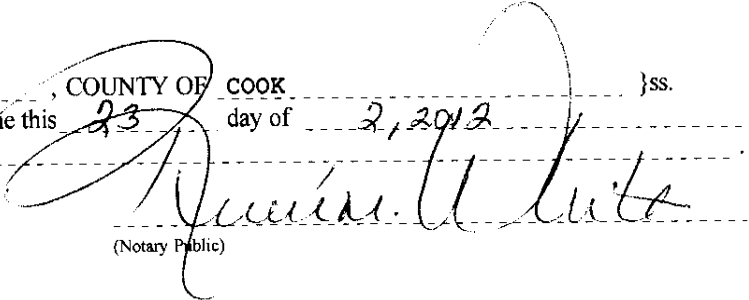 , COUNTY OF COOK }ss.
me this 23 day of 2, 2012
White
(Notary Public)